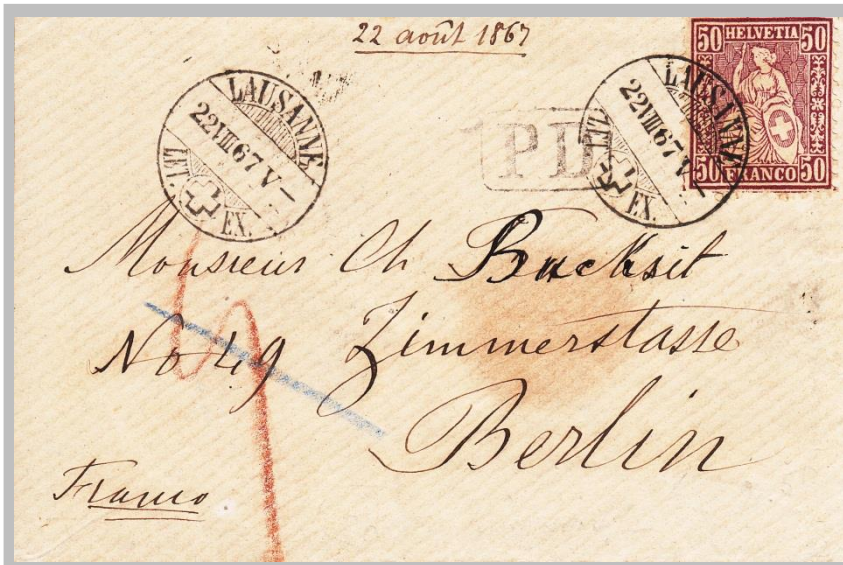 22 août 1867
50 HELVETIA 50
50 FRANCO 50
LAUSANNE
22 VIII 67 V–
LET. EX.
LAUSANNE
22 VIII 67 V–
LET. EX.
PD
Monsieur Ch Bucksit
No 49 Zimmerstasse
Berlin
Franco